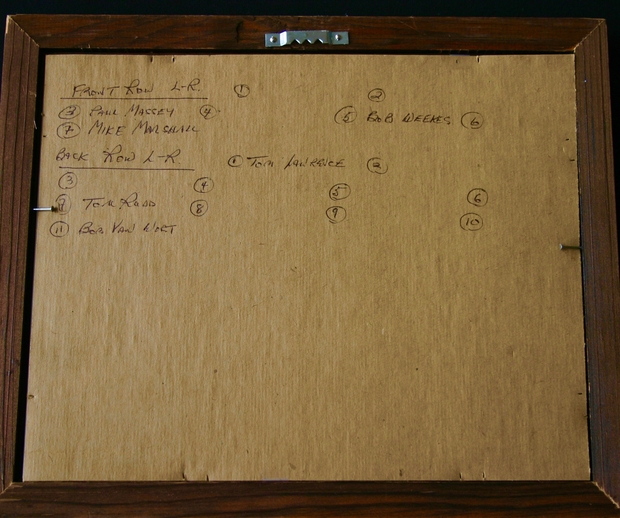 FRONT ROW L-R. ① ②
③ PAUL MASSEY ④ ⑤ BOB WEEKES ⑥
⑦ MIKE MARSHALL
BACK ROW L-R ① TOM LAWRENCE ②
③ ④ ⑤ ⑥
TOM RUDD ⑧ ⑨ ⑩
⑪ BOB VAN WORT